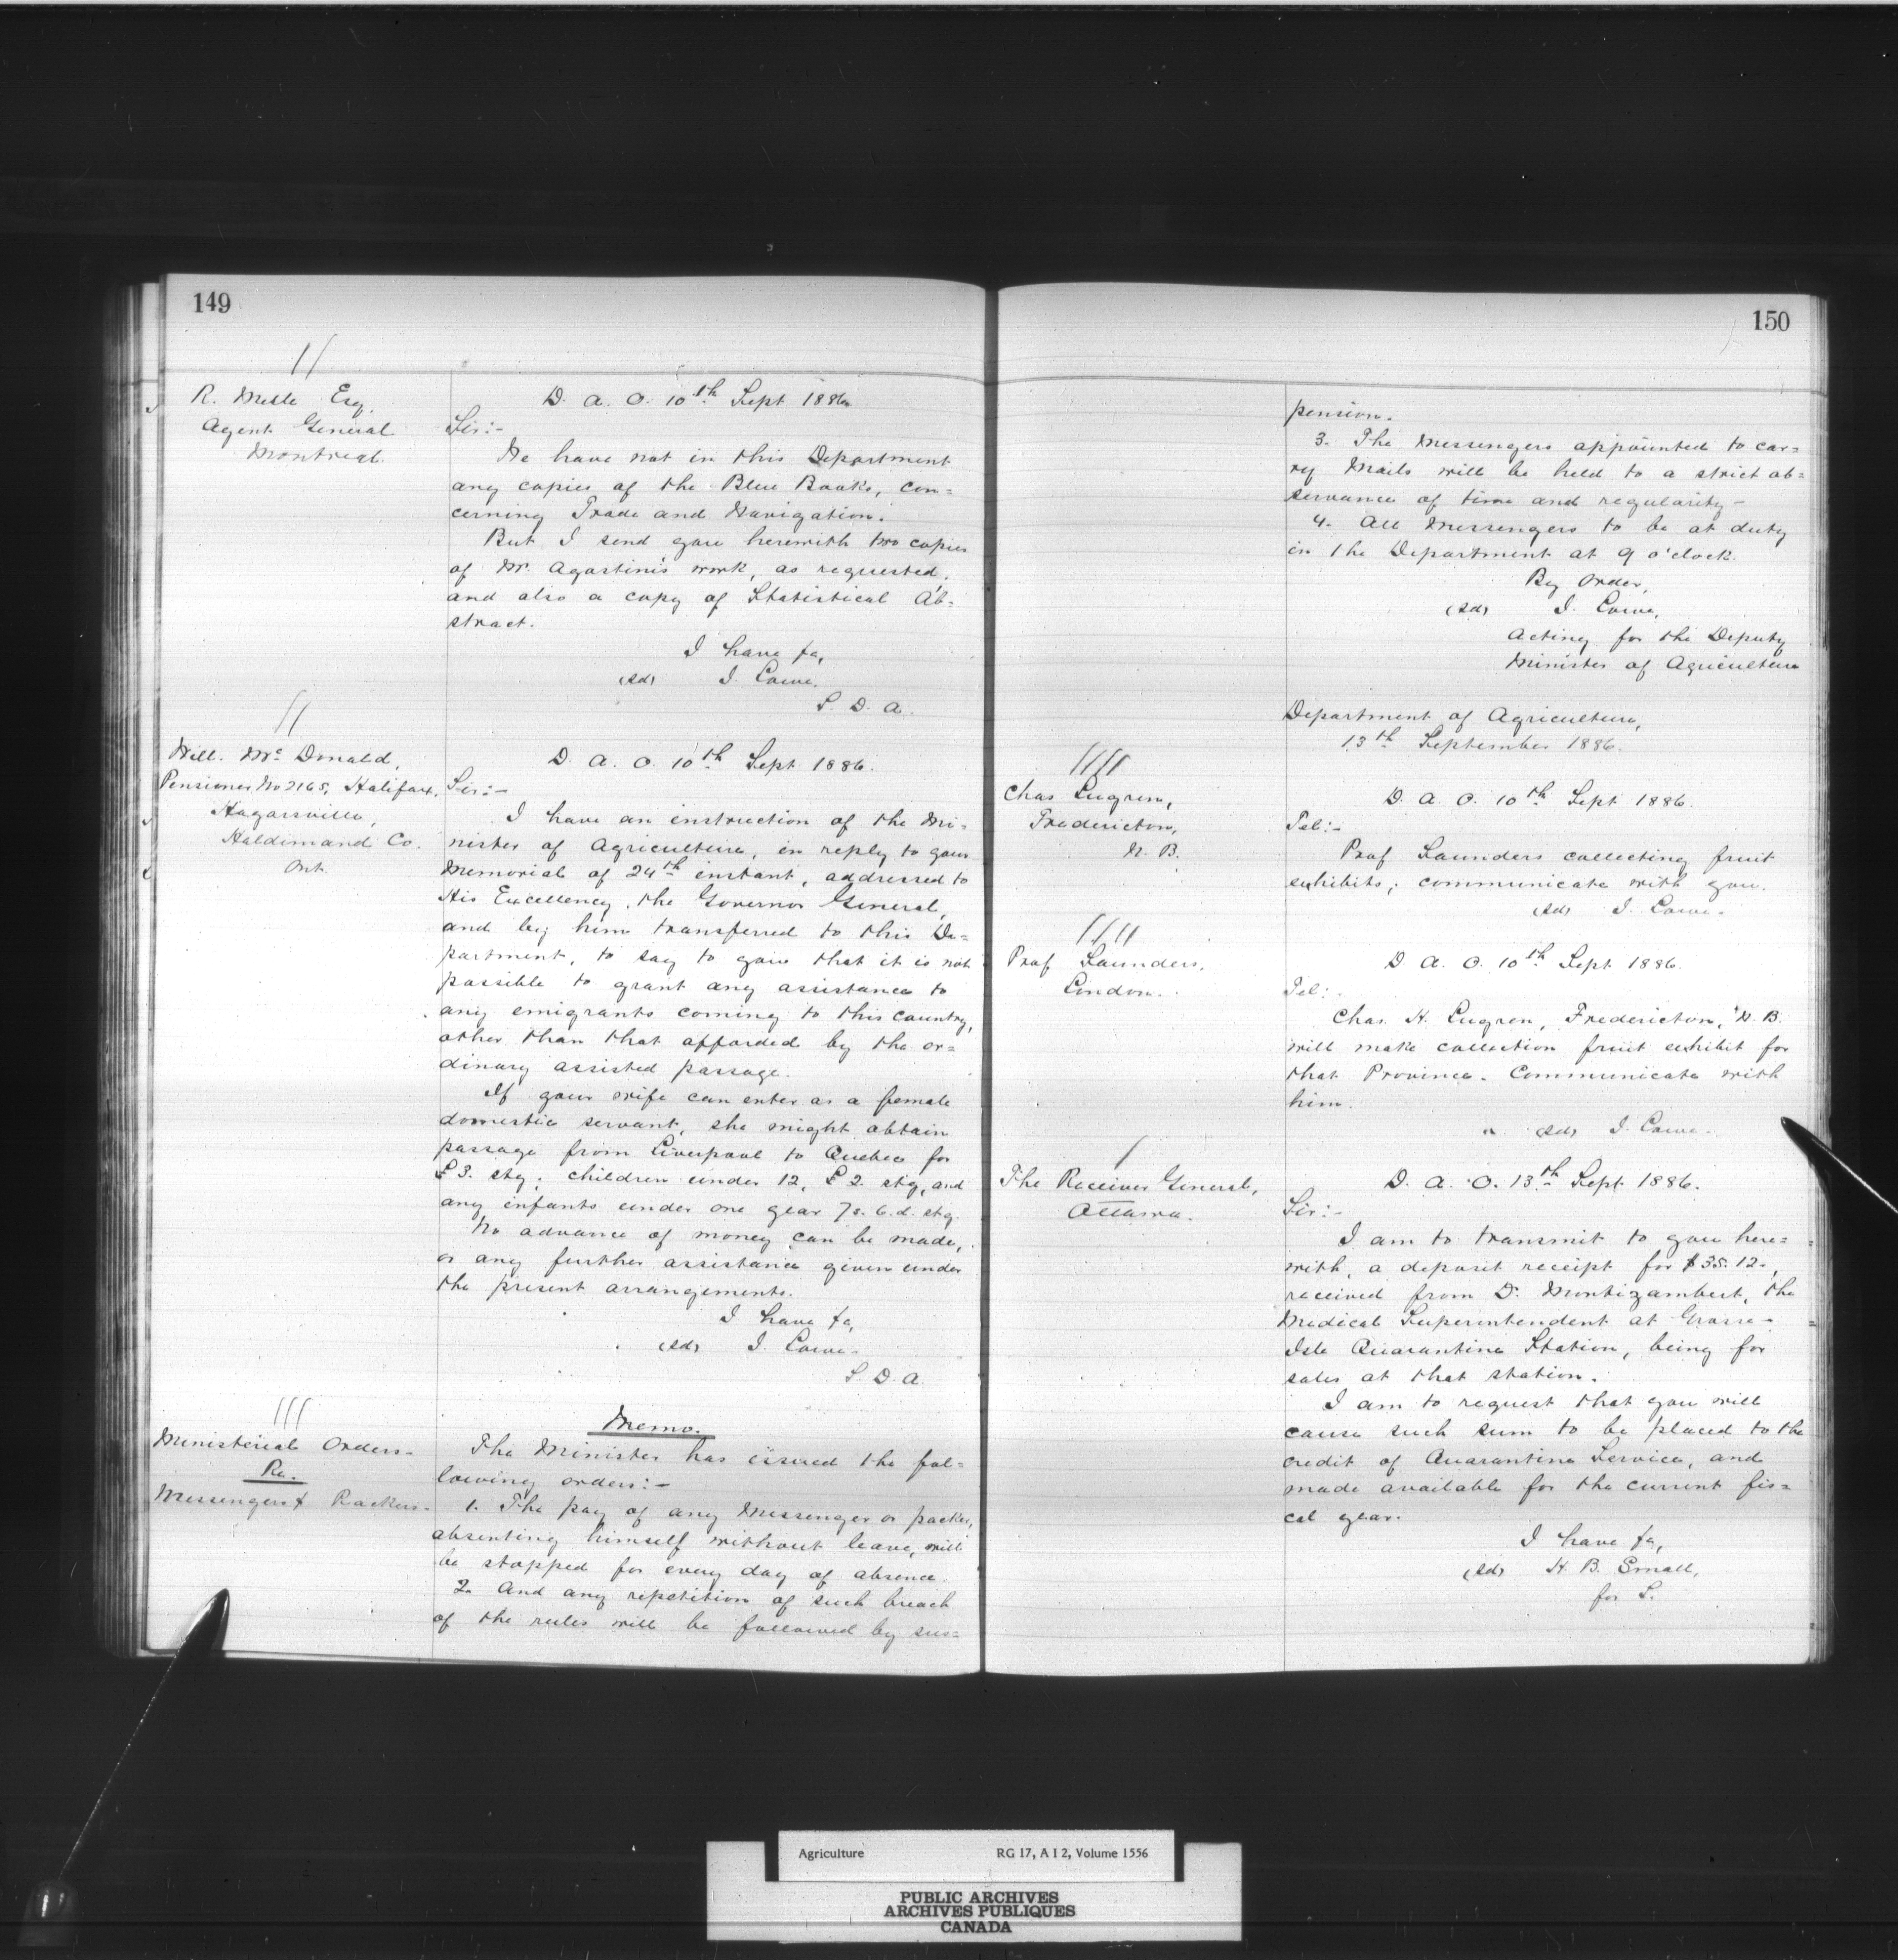 149
R. Mesle Esq,
Agent General
Montreal.
D. A. O. 10th Sept 1886
Sir:-
We have not in this Department
any copies of the Blue Books, con=
cerning Trade and Navigation.
But I send you herewith two copies
of Mr. Agostini's work, as requested,
and also a copy of Statistical Ab=
stract.
I have &c,
(sd) J. Lowe.
S. D. A.
Will. McDonald,
Pensioner No 2165, Halifax,
Hagarsville,
Haldimand Co.
Ont
D. A. O. 10th Sept 1886.
Sir:-
I have an instruction of the Mi=
nister of Agriculture, in reply to your
Memorial of 24th instant, addressed to
His Excellency, the Governor General,
and by him transferred to this De=
partment, to say to you that it is not
possible to grant any assistance to
any emigrants coming to this country,
other than that afforded by the or=
dinary assisted passage.
If your wife can enter as a female
domestic servant, she might obtain
passage from Liverpool to Quebec for
£3. stg; children under 12, £2. stg, and
any infants under one year 7s. 6.d. stg.
No advance of money can be made,
or any further assistance given under
the present arrangements.
I have &c,
(sd) J. Lowe.
S. D. A.
Ministerial Orders-
Re.
Messengers & Packers-
Memo.
The Minister has issued the fol=
lowing orders:-
1. The pay of any Messenger or packer,
absenting himself without leave, will
be stopped for every day of absence.
2. And any repetition of such breach
of the rules will be followed by sus=
150
pension.
3. The Messengers appointed to car=
ry Mails will be held to a strict ob=
servance of time and regularity-
4. All Messengers to be at duty
in the Department at 9 o'clock.
By Order,
(sd) J. Lowe,
Acting for the Deputy
Minister of Agriculture
Department of Agriculture,
13th September 1886.
Chas Lugren,
Fredericton,
N. B.
D. A. O. 10th Sept 1886.
Tel:-
Prof Saunders collecting fruit
exhibits; communicate with you.
(sd) J. Lowe-
Prof Saunders,
London.
D. A. O. 10th Sept 1886.
Tel:
Chas. H. Lugren, Fredericton, N. B.
will make collection fruit exhibit for
that Province. Communicate with
him.
(sd) J. Lowe-
The Receiver General,
Ottawa.
D. A. O. 13th Sept. 1886.
Sir:-
I am to transmit to you here=
with, a deposit receipt for $35.12-,
received from Dr. Montizambert, the
Medical Superintendent at Grosse-
Isle Quarantine Station, being for
sales at that station.
I am to request that you will
cause such sum to be placed to the
credit of Quarantine Service, and
made available for the current fis=
cal year.
I have &c,
(sd) H. B. Small,
for S.
Agriculture RG 17, A I 2, Volume 1556
PUBLIC ARCHIVES
ARCHIVES PUBLIQUES
CANADA